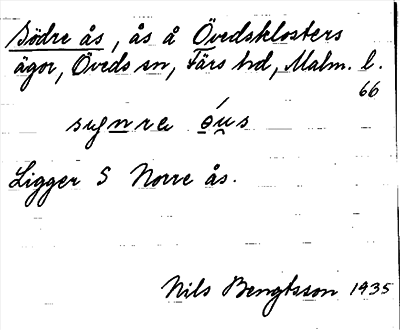 Södre ås, ås å Övedsklosters
ägor, Öveds sn, Färs hd, Malm. l.
66
Ligger S Norre ås.
Nils Bengtsson 1935